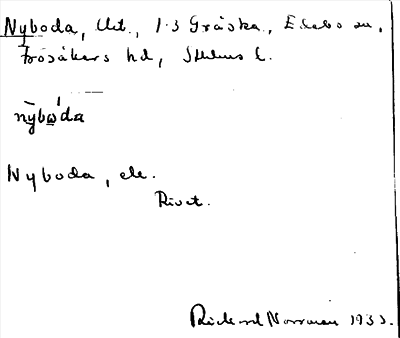 Nyboda, Ut., 1.3 Gräska, Ekebo sn,
Frösåkers hd, Sthlms l.
nybω'da
Nyboda, ele.
Rivet.
Rickard Norrman 1933.